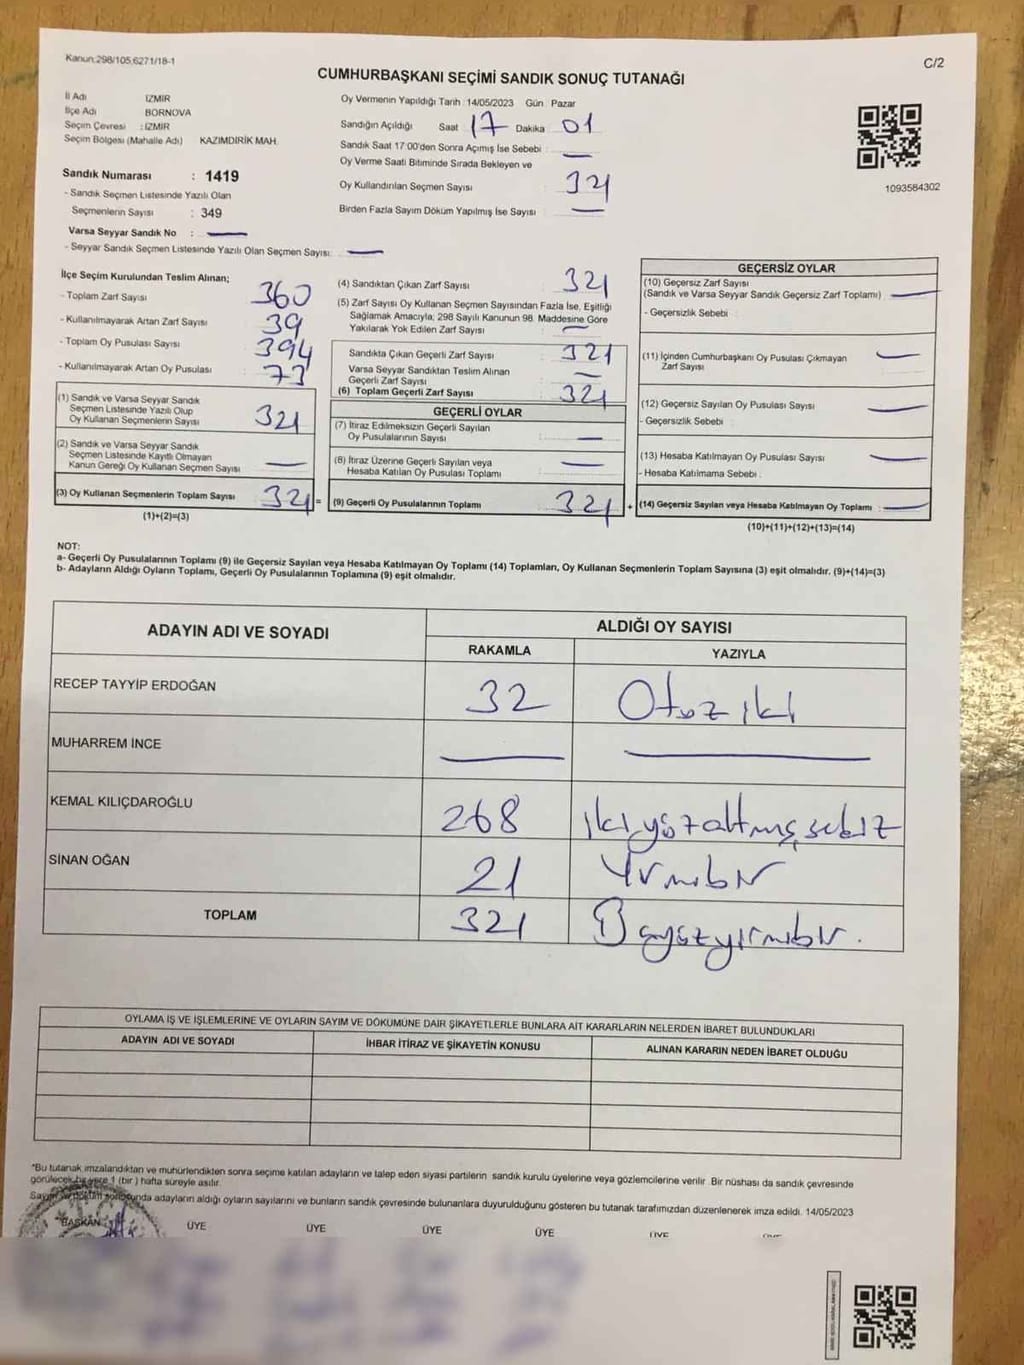 Kanun:298/105,6271/18-1
C/2
CUMHURBAŞKANI SEÇİMİ SANDIK SONUÇ TUTANAĞI
İl Adı : İZMİR
İlçe Adı : BORNOVA
Seçim Çevresi : İZMİR
Seçim Bölgesi (Mahalle Adı) KAZIMDİRİK MAH.
Sandık Numarası : 1419
- Sandık Seçmen Listesinde Yazılı Olan
Seçmenlerin Sayısı : 349
Varsa Seyyar Sandık No :
- Seyyar Sandık Seçmen Listesinde Yazılı Olan Seçmen Sayısı:
Oy Vermenin Yapıldığı Tarih :14/05/2023 Gün Pazar
Sandığın Açıldığı Saat 17 Dakika 01
Sandık Saat 17:00'den Sonra Açılmış İse Sebebi :
Oy Verme Saati Bitiminde Sırada Bekleyen ve
Oy Kullandırılan Seçmen Sayısı : 321
Birden Fazla Sayım Döküm Yapılmış İse Sayısı :
1093584302
İlçe Seçim Kurulundan Teslim Alınan;
- Toplam Zarf Sayısı : 360
- Kullanılmayarak Artan Zarf Sayısı : 39
- Toplam Oy Pusulası Sayısı : 394
- Kullanılmayarak Artan Oy Pusulası : 73
(1) Sandık ve Varsa Seyyar Sandık
Seçmen Listesinde Yazılı Olup
Oy Kullanan Seçmenlerin Sayısı : 321
(2) Sandık ve Varsa Seyyar Sandık
Seçmen Listesinde Kayıtlı Olmayan
Kanun Gereği Oy Kullanan Seçmen Sayısı :
(3) Oy Kullanan Seçmenlerin Toplam Sayısı : 321 =
(1)+(2)=(3)
(4) Sandıktan Çıkan Zarf Sayısı : 321
(5) Zarf Sayısı Oy Kullanan Seçmen Sayısından Fazla İse, Eşitliği
Sağlamak Amacıyla; 298 Sayılı Kanunun 98. Maddesine Göre
Yakılarak Yok Edilen Zarf Sayısı :
Sandıkta Çıkan Geçerli Zarf Sayısı : 321
Varsa Seyyar Sandıktan Teslim Alınan
Geçerli Zarf Sayısı :
(6) Toplam Geçerli Zarf Sayısı : 321
GEÇERLİ OYLAR
(7) İtiraz Edilmeksizin Geçerli Sayılan
Oy Pusulalarının Sayısı :
(8) İtiraz Üzerine Geçerli Sayılan veya
Hesaba Katılan Oy Pusulası Toplamı :
(9) Geçerli Oy Pusulalarının Toplamı : 321 +
GEÇERSİZ OYLAR
(10) Geçersiz Zarf Sayısı
(Sandık ve Varsa Seyyar Sandık Geçersiz Zarf Toplamı) :
- Geçersizlik Sebebi :
(11) İçinden Cumhurbaşkanı Oy Pusulası Çıkmayan
Zarf Sayısı :
(12) Geçersiz Sayılan Oy Pusulası Sayısı :
- Geçersizlik Sebebi :
(13) Hesaba Katılmayan Oy Pusulası Sayısı :
- Hesaba Katılmama Sebebi :
(14) Geçersiz Sayılan veya Hesaba Katılmayan Oy Toplamı :
(10)+(11)+(12)+(13)=(14)
NOT:
a- Geçerli Oy Pusulalarının Toplamı (9) ile Geçersiz Sayılan veya Hesaba Katılmayan Oy Toplamı (14) Toplamları, Oy Kullanan Seçmenlerin Toplam Sayısına (3) eşit olmalıdır. (9)+(14)=(3)
b- Adayların Aldığı Oyların Toplamı, Geçerli Oy Pusulalarının Toplamına (9) eşit olmalıdır.
ADAYIN ADI VE SOYADI ALDIĞI OY SAYISI
RAKAMLA YAZIYLA
RECEP TAYYİP ERDOĞAN 32 Otuz iki
MUHARREM İNCE
KEMAL KILIÇDAROĞLU 268 ikiyüzaltmışsekiz
SİNAN OĞAN 21 Yirmibir
TOPLAM 321 Üçyüzyirmibir.
OYLAMA İŞ VE İŞLEMLERİNE VE OYLARIN SAYIM VE DÖKÜMÜNE DAİR ŞİKAYETLERLE BUNLARA AİT KARARLARIN NELERDEN İBARET BULUNDUKLARI
ADAYIN ADI VE SOYADI İHBAR İTİRAZ VE ŞİKAYETİN KONUSU ALINAN KARARIN NEDEN İBARET OLDUĞU
*Bu tutanak imzalandıktan ve mühürlendikten sonra seçime katılan adayların ve talep eden siyasi partilerin sandık kurulu üyelerine veya gözlemcilerine verilir. Bir nüshası da sandık çevresinde
görülecek bir yere 1 (bir ) hafta süreyle asılır.
Sayım ve döküm sonucunda adayların aldığı oyların sayılarını ve bunların sandık çevresinde bulunanlara duyurulduğunu gösteren bu tutanak tarafımızdan düzenlenerek imza edildi. 14/05/2023
BAŞKAN ÜYE ÜYE ÜYE ÜYE ÜYE